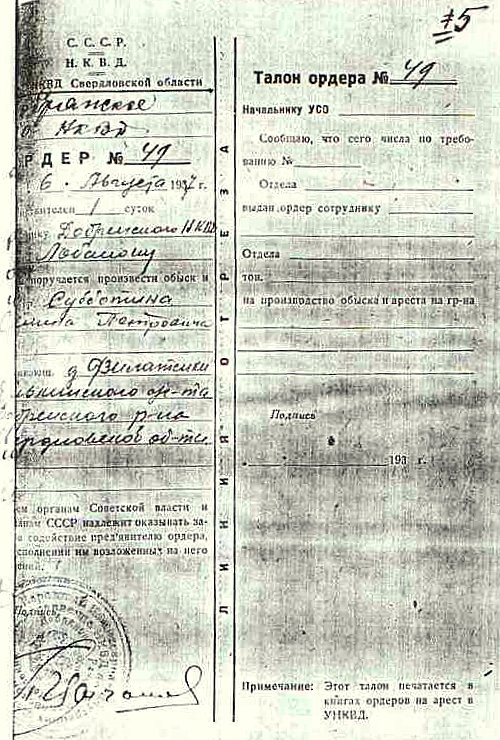 75
С. С. С. Р.
Н. К. В. Д.
НКВД Свердловской области
НКВД
РДЕР № 49
6 . Августа 1937 г.
1 суток
Добрянского НКВД
Лобанову
поручается произвести обыск и
Субботина
Петровича
д Филатики
р-на
ем органам Советской власти и
анам СССР надлежит оказывать за-
содействие пред'явителю ордера,
сполнении им возложенных на него
ний.
Подпись
ЛИНИЯ ОТРЕЗА
Талон ордера № 49
Начальнику УСО
Сообщаю, что сего числа по требо-
ванию №
Отдела
выдан ордер сотруднику
Отдела
тов.
на производство обыска и ареста на гр-на
Подпись
193 г.
Примечание: Этот талон печатается в
книгах ордеров на арест в
УНКВД.